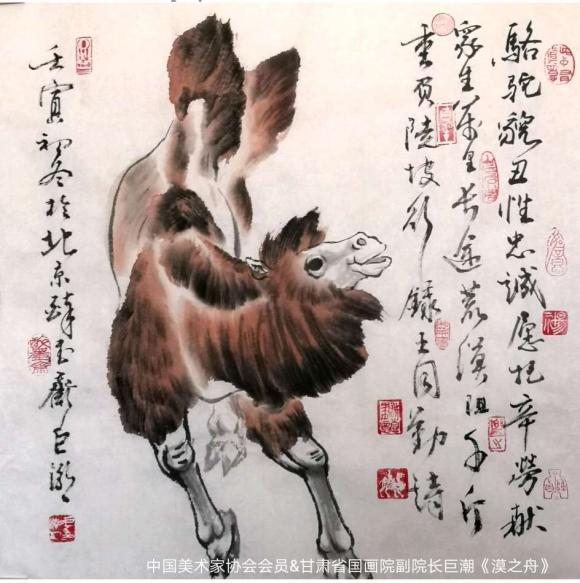 駱駝貌丑性忠誠愿把辛勞献
衆生萬里长途荒漠阻千斤
重負陡坡行錄王同勤詩
壬寅初冬於北京巨潮
中国美术家协会会员&甘肃省国画院副院长巨潮《漠之舟》